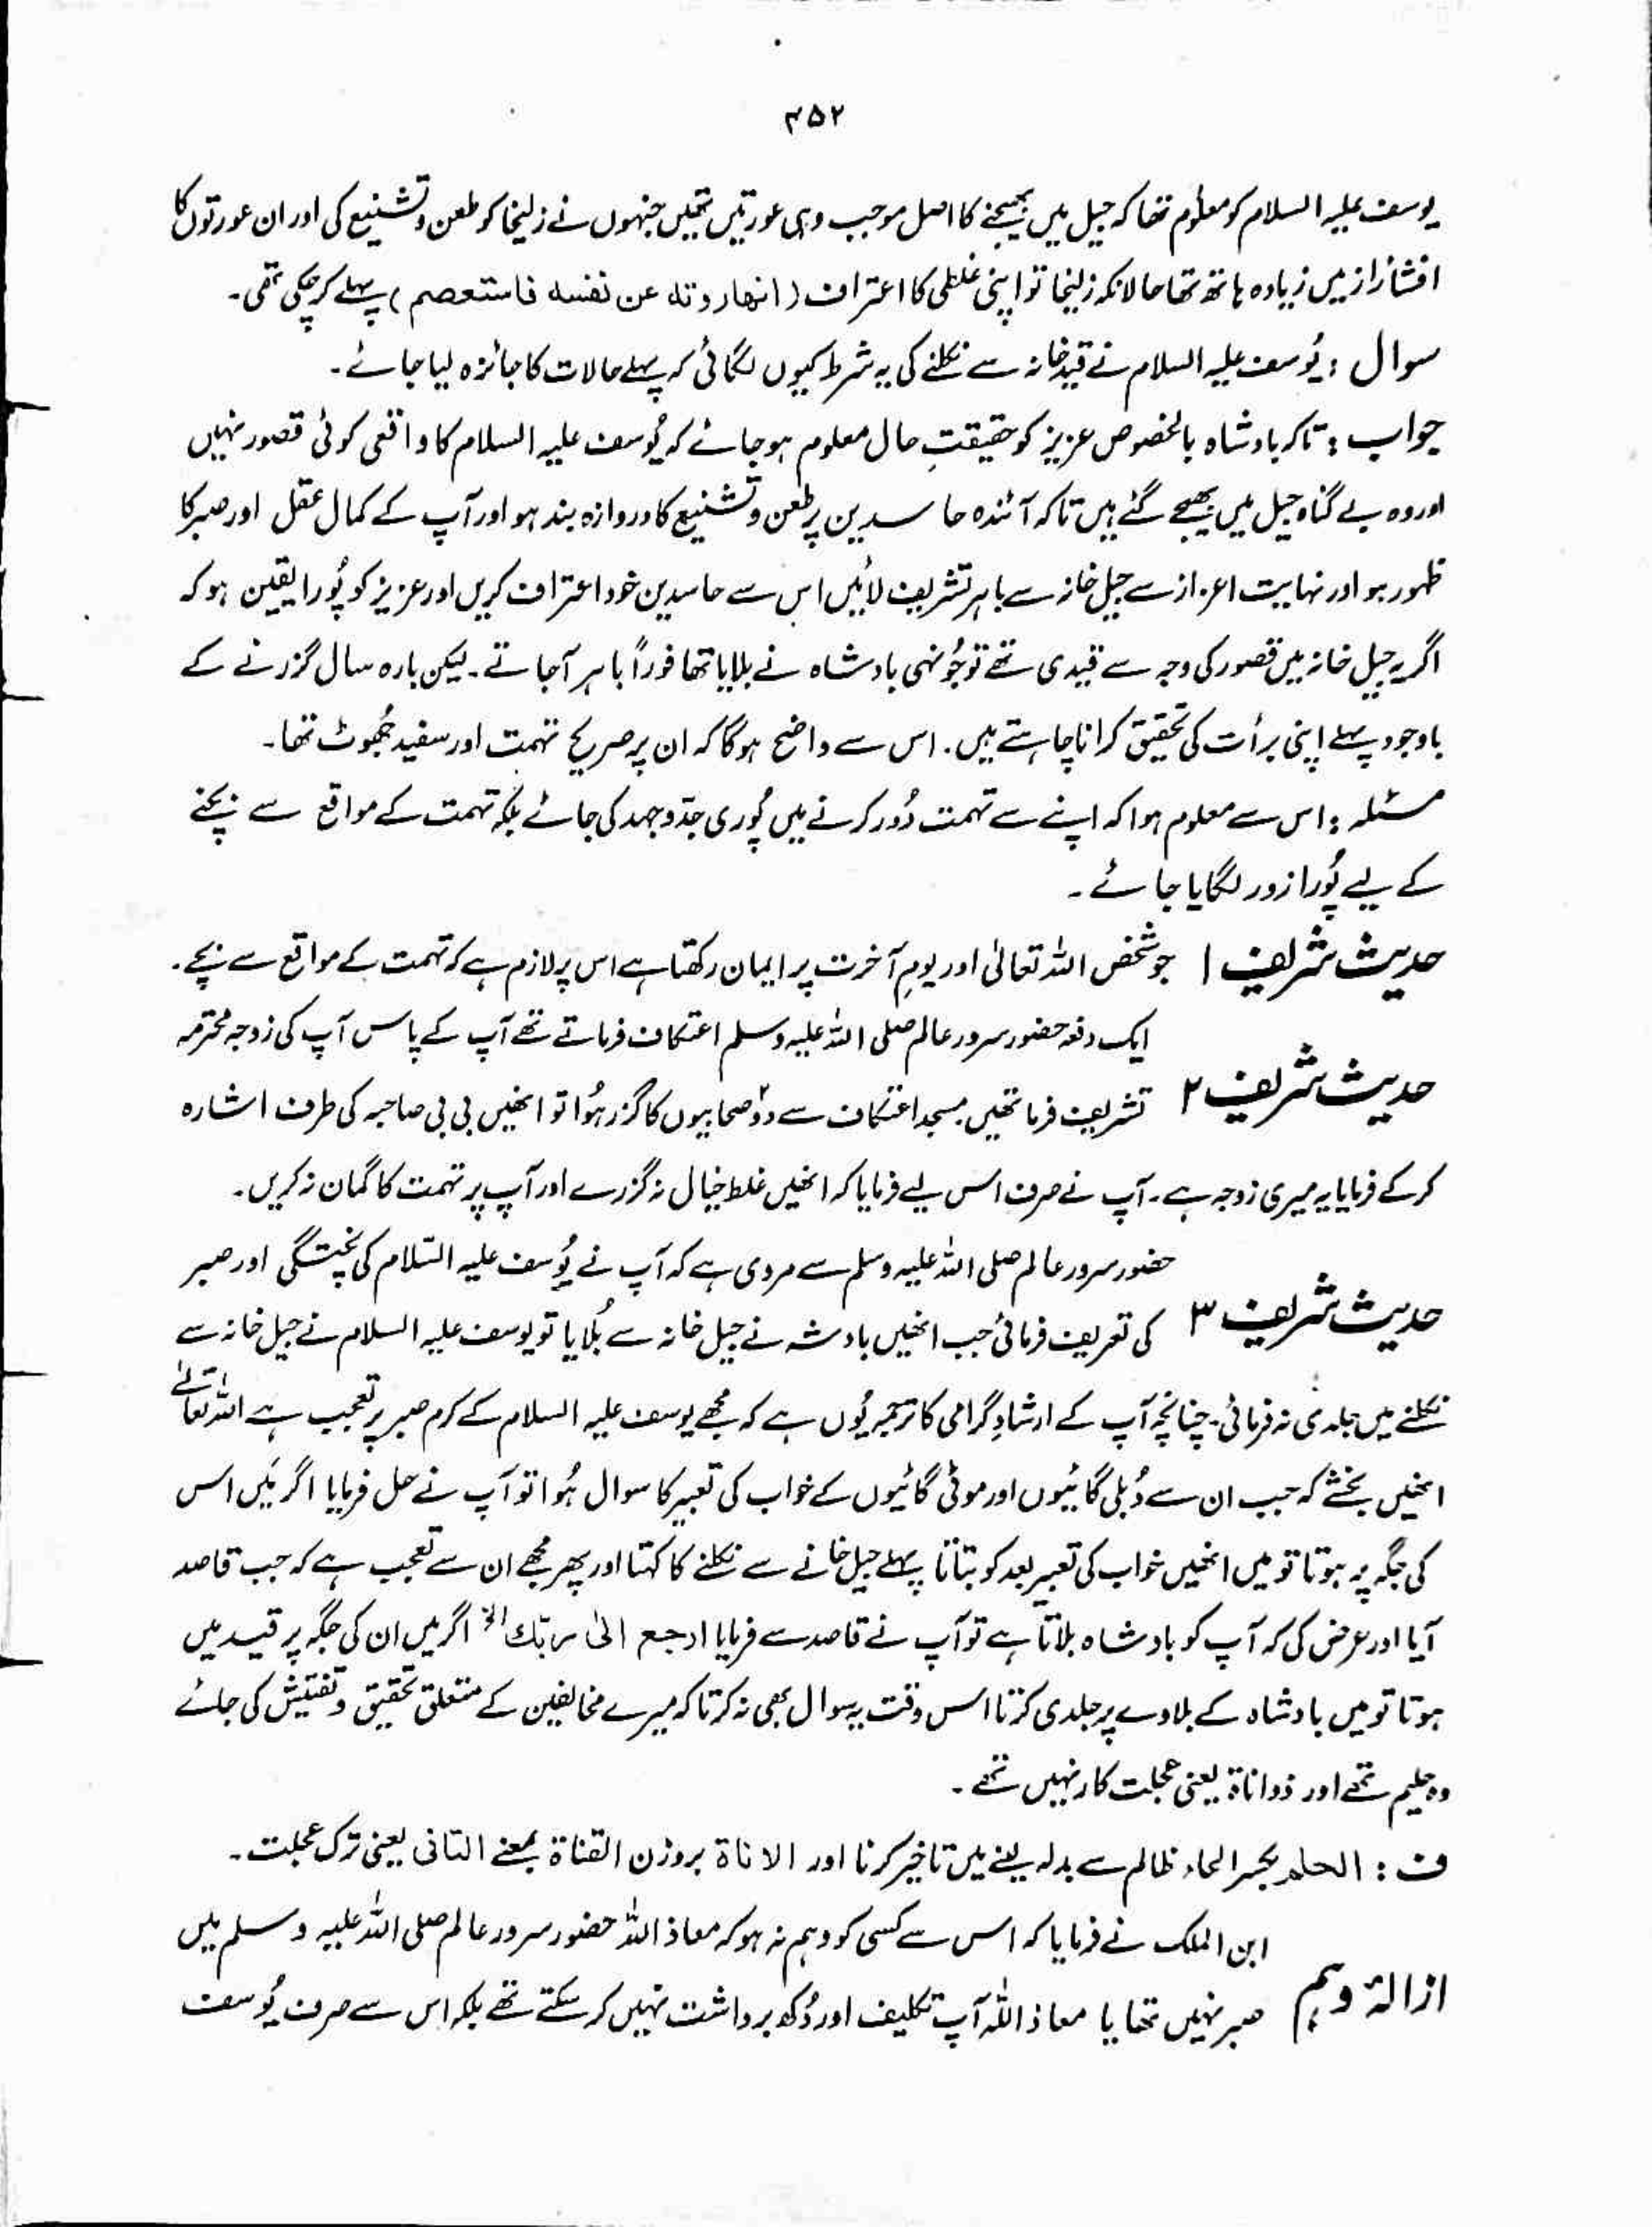 ۳۵۲
یوسف علیہ السلام کو معلوم تھا کہ جیل میں بھیجنے کا اصل موجب وہی عورتیں تھیں جنہوں نے زلیخا کو طعن و تشنیع کی اور ان عورتوں کا
افشأ راز میں زیادہ ہاتھ تھا حالانکہ زلیخا تو اپنی غلطی کا اعتراف ( انھا راودتہ عن نفسہ فاستعصم ) پہلے کر چکی تھی ۔
سوال : یُوسف علیہ السلام نے قید خانہ سے نکلنے کی یہ شرط کیوں لگائی کہ پہلے حالات کا جائزہ لیا جائے ۔
جواب : تاکہ بادشاہ بالخصوص عزیز کو حقیقتِ حال معلوم ہو جائے کہ یُوسف علیہ السلام کا واقعی کوئی قصور نہیں
اور وہ بے گناہ جیل میں بھیجے گئے ہیں تاکہ آئندہ حاسدین پر طعن و تشنیع کا دروازہ بند ہو اور آپ کے کمال عقل اور صبر کا
ظہور ہو اور نہایت اعزاز سے جیل خانہ سے باہر تشریف لائیں اس سے حاسدین خود اعتراف کریں اور عزیز کو پُورا یقین ہو کہ
اگر یہ جیل خانہ میں قصور کی وجہ سے قیدی تھے تو جُونہی بادشاہ نے بلایا تھا فوراً باہر آجاتے ۔ لیکن بارہ سال گزرنے کے
باوجود پہلے اپنی برأت کی تحقیق کرانا چاہتے ہیں ۔ اس سے واضح ہوگا کہ ان پر صریح تہمت اور سفید جُھوٹ تھا ۔
مسئلہ : اس سے معلوم ہوا کہ اپنے سے تہمت دُور کرنے میں پُوری جدّوجہد کی جائے بلکہ تہمت کے مواقع سے بچنے
کے لیے پُورا زور لگایا جائے ۔
حدیث شریف ۱ جو شخص اللہ تعالیٰ اور یومِ آخرت پر ایمان رکھتا ہے اس پر لازم ہے کہ تہمت کے مواقع سے بچے ۔
ایک دفعہ حضور سرور عالم صلی اللہ علیہ وسلم اعتکاف فرماتے تھے آپ کے پاس آپ کی زوجہ محترمہ
حدیث شریف ۲ تشریف فرما تھیں مسجد اعتکاف سے دو صحابیوں کا گزر ہُوا تو انھیں بی بی صاحبہ کی طرف اشارہ
کرکے فرمایا یہ میری زوجہ ہے ۔ آپ نے صرف اس لیے فرمایا کہ انھیں غلط خیال نہ گزرے اور آپ پر تہمت کا گمان نہ کریں ۔
حضور سرور عالم صلی اللہ علیہ وسلم سے مروی ہے کہ آپ نے یُوسف علیہ السّلام کی پختگی اور صبر
حدیث شریف ۳ کی تعریف فرمائی جب انھیں بادشہ نے جیل خانہ سے بُلایا تو یوسف علیہ السلام نے جیل خانہ سے
نکلنے میں جلدی نہ فرمائی ۔ چنانچہ آپ کے ارشادِ گرامی کا ترجمہ یُوں ہے کہ مجھے یوسف علیہ السلام کے کرم صبر پر تعجب ہے اللہ تعالیٰ
انھیں بخشے کہ جب ان سے دُبلی گائیوں اور موٹی گائیوں کے خواب کی تعبیر کا سوال ہُوا تو آپ نے حل فرمایا اگر میَں اس
کی جگہ پہ ہوتا تو میں انھیں خواب کی تعبیر بعد کو بتاتا پہلے جیل خانے سے نکلنے کا کہتا اور پھر مجھے ان سے تعجب ہے کہ جب قاصد
آیا اور عرض کی کہ آپ کو بادشاہ بلاتا ہے تو آپ نے قاصد سے فرمایا ارجع الیٰ ربّك الخ اگر میں ان کی جگہ پر قید میں
ہوتا تو میں بادشاہ کے بلاوے پر جلدی کرتا اس وقت یہ سوال بھی نہ کرتا کہ میرے مخالفین کے متعلق تحقیق و تفتیش کی جائے
وہ حلیم تھے اور ذواناۃ یعنی عجلت کار نہیں تھے ۔
ف : الحلم بکسر الحاء ظالم سے بدلہ لینے میں تاخیر کرنا اور الاناۃ بروزن القناۃ بمعنے التانی یعنی ترک عجلت ۔
ابن الملک نے فرمایا کہ اس سے کسی کو وہم نہ ہو کہ معاذ اللہ حضور سرور عالم صلی اللہ علیہ وسلم میں
ازالۂ وہم صبر نہیں تھا یا معاذ اللہ آپ تکلیف اور دُکھ برداشت نہیں کر سکتے تھے بلکہ اس سے صرف یُوسف